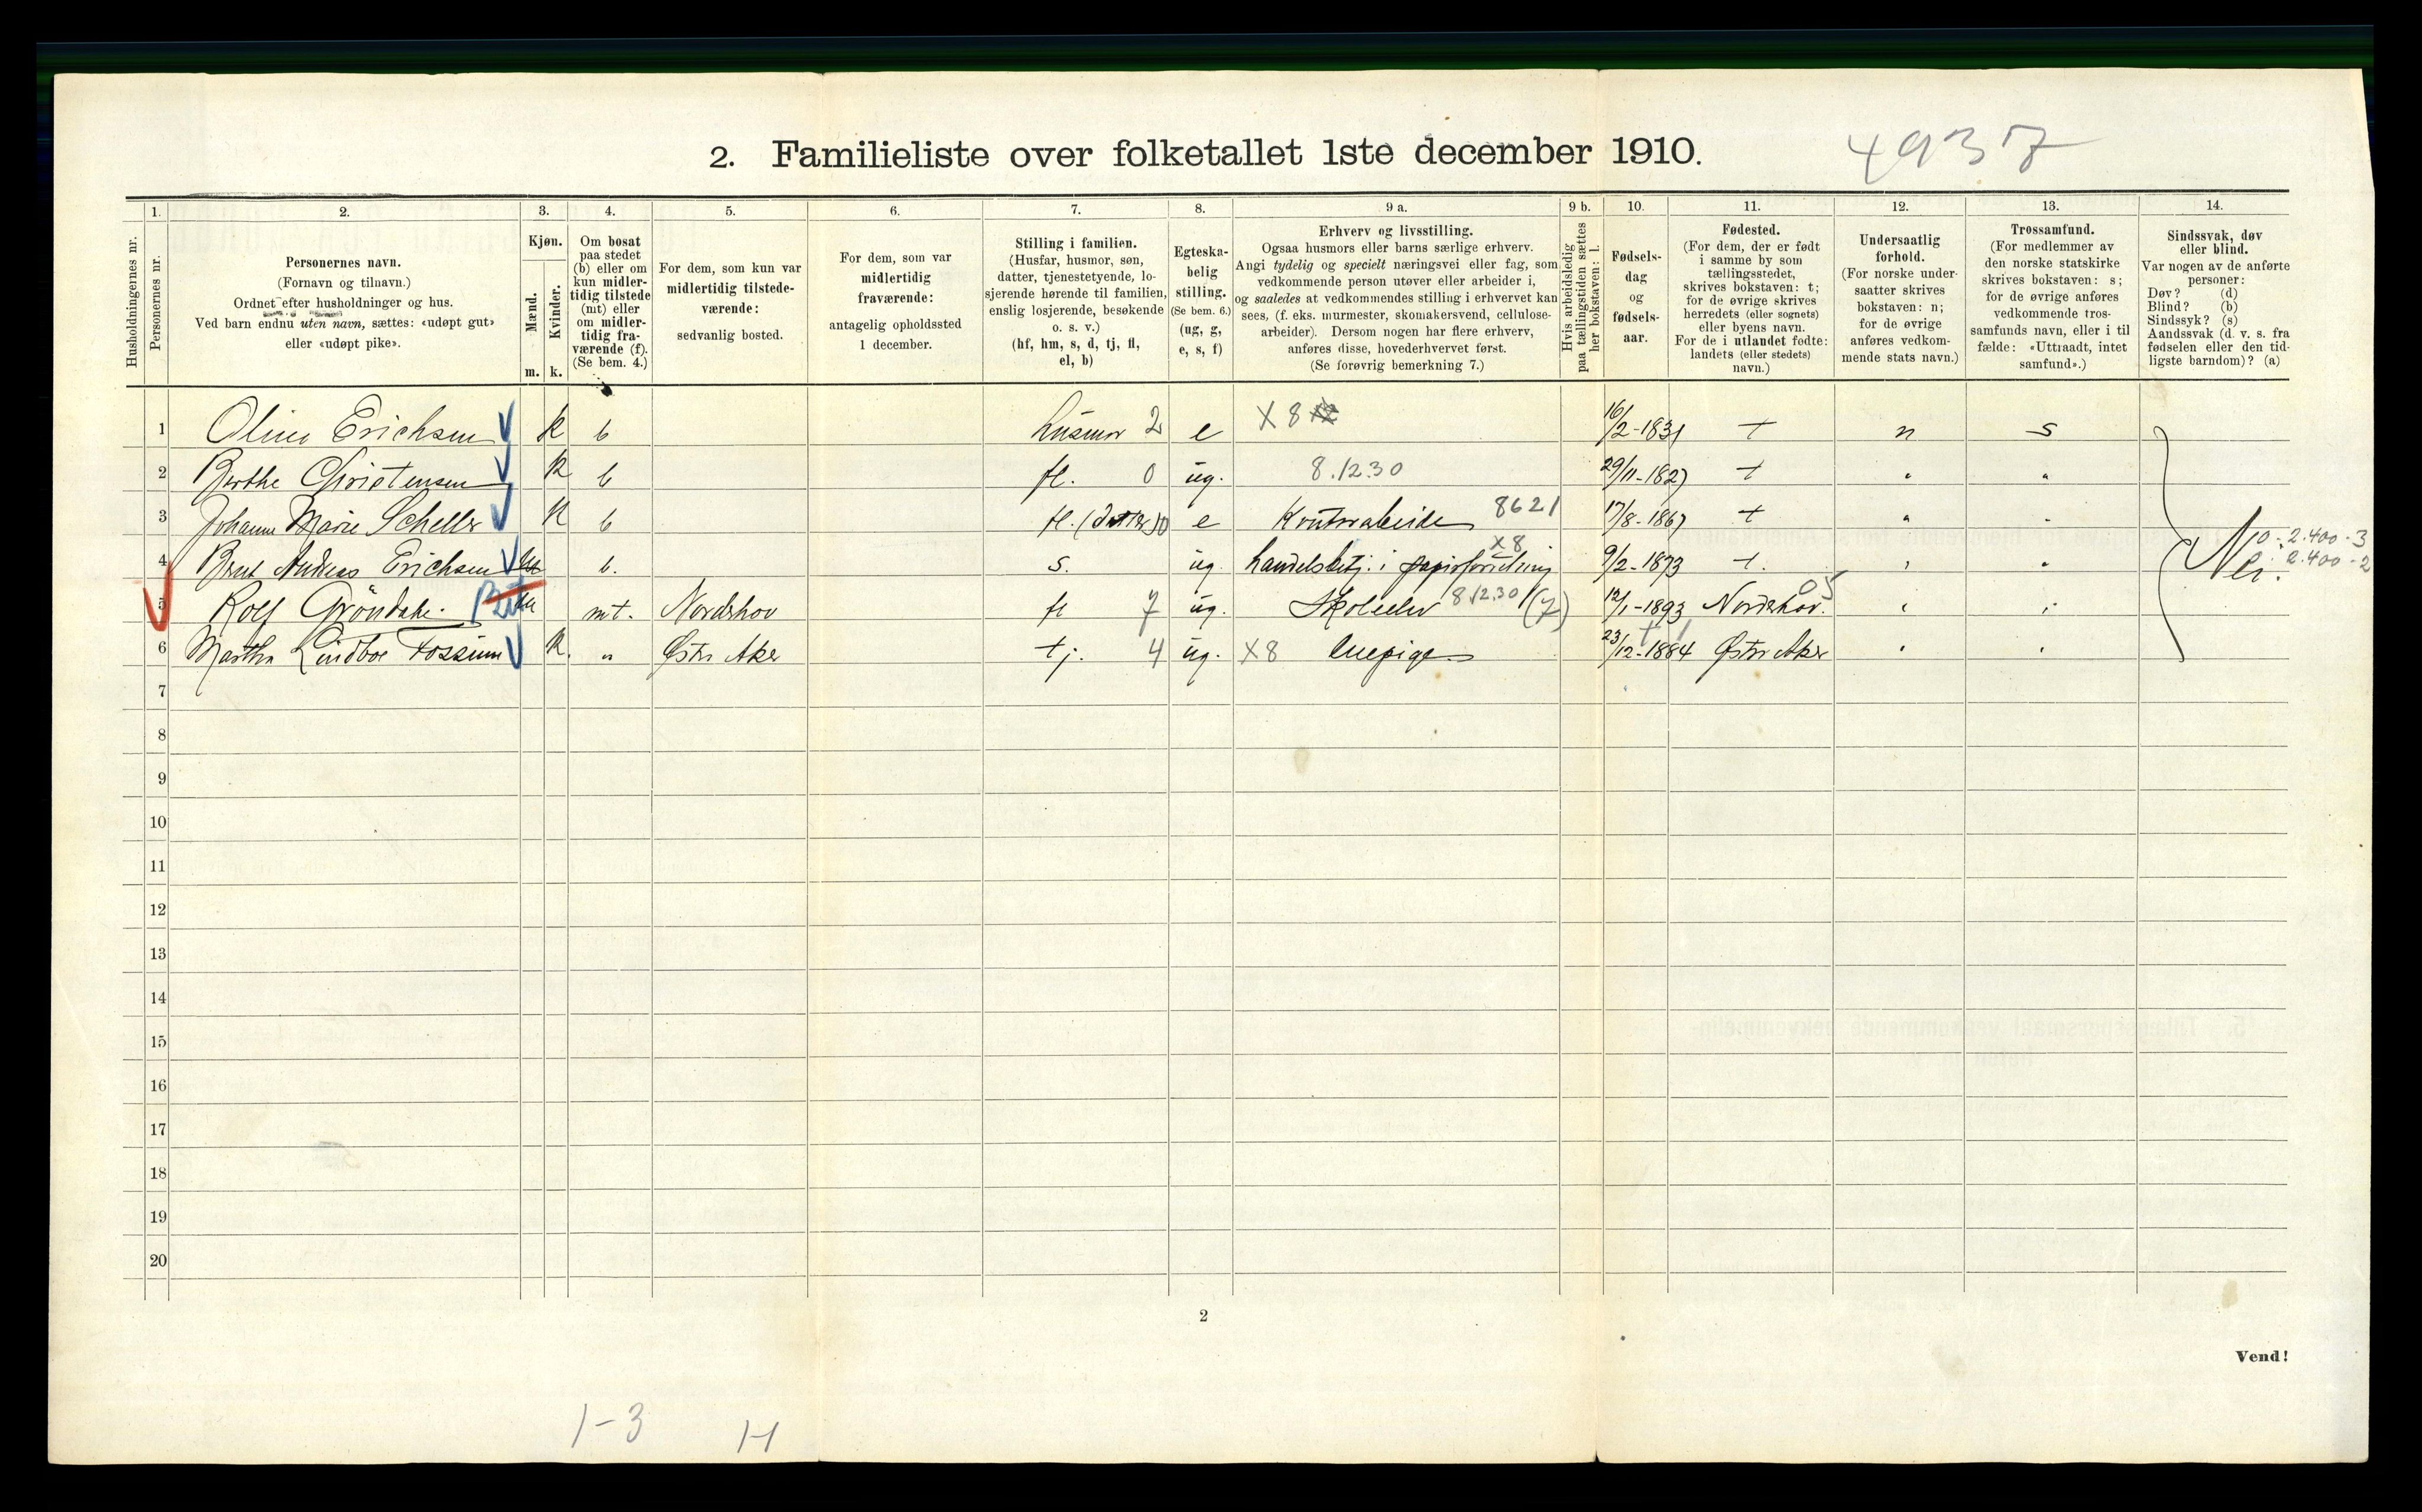 2. Familieliste over folketallet 1ste december 1910.
4937
Husholdningernes nr.
1.
Personernes nr.
2.
Personernes navn.
(Fornavn og tilnavn.)
Ordnet efter husholdninger og hus.
Ved barn endnu uten navn, sættes: «udøpt gut»
eller «udøpt pike».
3.
Kjøn.
Mænd.
Kvinder.
m. k.
4.
Om bosat
paa stedet
(b) eller om
kun midler-
tidig tilstede
(mt) eller
om midler-
tidig fra-
værende (f).
(Se bem. 4.)
5.
For dem, som kun var
midlertidig tilstede-
værende:
sedvanlig bosted.
6.
For dem, som var
midlertidig
fraværende:
antagelig opholdssted
1 december.
7.
Stilling i familien.
(Husfar, husmor, søn,
datter, tjenestetyende, lo-
sjerende hørende til familien,
enslig losjerende, besøkende
o. s. v.)
(hf, hm, s, d, tj, fl,
el, b)
8.
Egteska-
belig
stilling.
(Se bem. 6.)
(ug, g,
e, s, f)
9 a.
Erhverv og livsstilling.
Ogsaa husmors eller barns særlige erhverv.
Angi tydelig og specielt næringsvei eller fag, som
vedkommende person utøver eller arbeider i,
og saaledes at vedkommendes stilling i erhvervet kan
sees, (f. eks. murmester, skomakersvend, cellulose-
arbeider). Dersom nogen har flere erhverv,
anføres disse, hovederhvervet først.
(Se forøvrig bemerkning 7.)
9 b.
Hvis arbeidsledig
paa tællingstiden sættes
her bokstaven: l.
10.
Fødsels-
dag
og
fødsels-
aar.
11.
Fødested.
(For dem, der er født
i samme by som
tællingsstedet,
skrives bokstaven: t;
for de øvrige skrives
herredets (eller sognets)
eller byens navn.
For de i utlandet fødte:
landets (eller stedets)
navn.)
12.
Undersaatlig
forhold.
(For norske under-
saatter skrives
bokstaven: n;
for de øvrige
anføres vedkom-
mende stats navn.)
13.
Trossamfund.
(For medlemmer av
den norske statskirke
skrives bokstaven: s;
for de øvrige anføres
vedkommende tros-
samfunds navn, eller i til
fælde: «Uttraadt, intet
samfund».)
14.
Sindssvak, døv
eller blind.
Var nogen av de anførte
personer:
Døv? (d)
Blind? (b)
Sindssyk? (s)
Aandssvak (d. v. s. fra
fødselen eller den tid-
ligste barndom)? (a)
1 Oline Erichsen k b husmor 2 e X8 16/2-1831 t n s
2 Berthe Christensen k b fl. 0 ug. 8.1230 29/11-1827 t " "
3 Johanne Marie Scheller k b fl. (datter) 0 e Kontorarbeide 8621 17/8-1867 t " "
4 Bernt Andreas Erichsen m b. s. ug. handelsbetj. i papirforretning X8 9/2-1873 t. " " Nei. 0-2.400-3
2.400-2
5 Rolf Gröndahl. m mt. Nordehov fl 7 ug. Skoleelev 8 1230 (7) 12/1-1893 Nordehov. 05 " "
6 Martha Lindboe Fossum k. " Østre Aker tj. 4 ug. X8 Enepige 23/12-1884 Østre Aker " "
7
8
9
10
11
12
13
14
15
16
17
18
19
20
2
Vend!
1-3 H